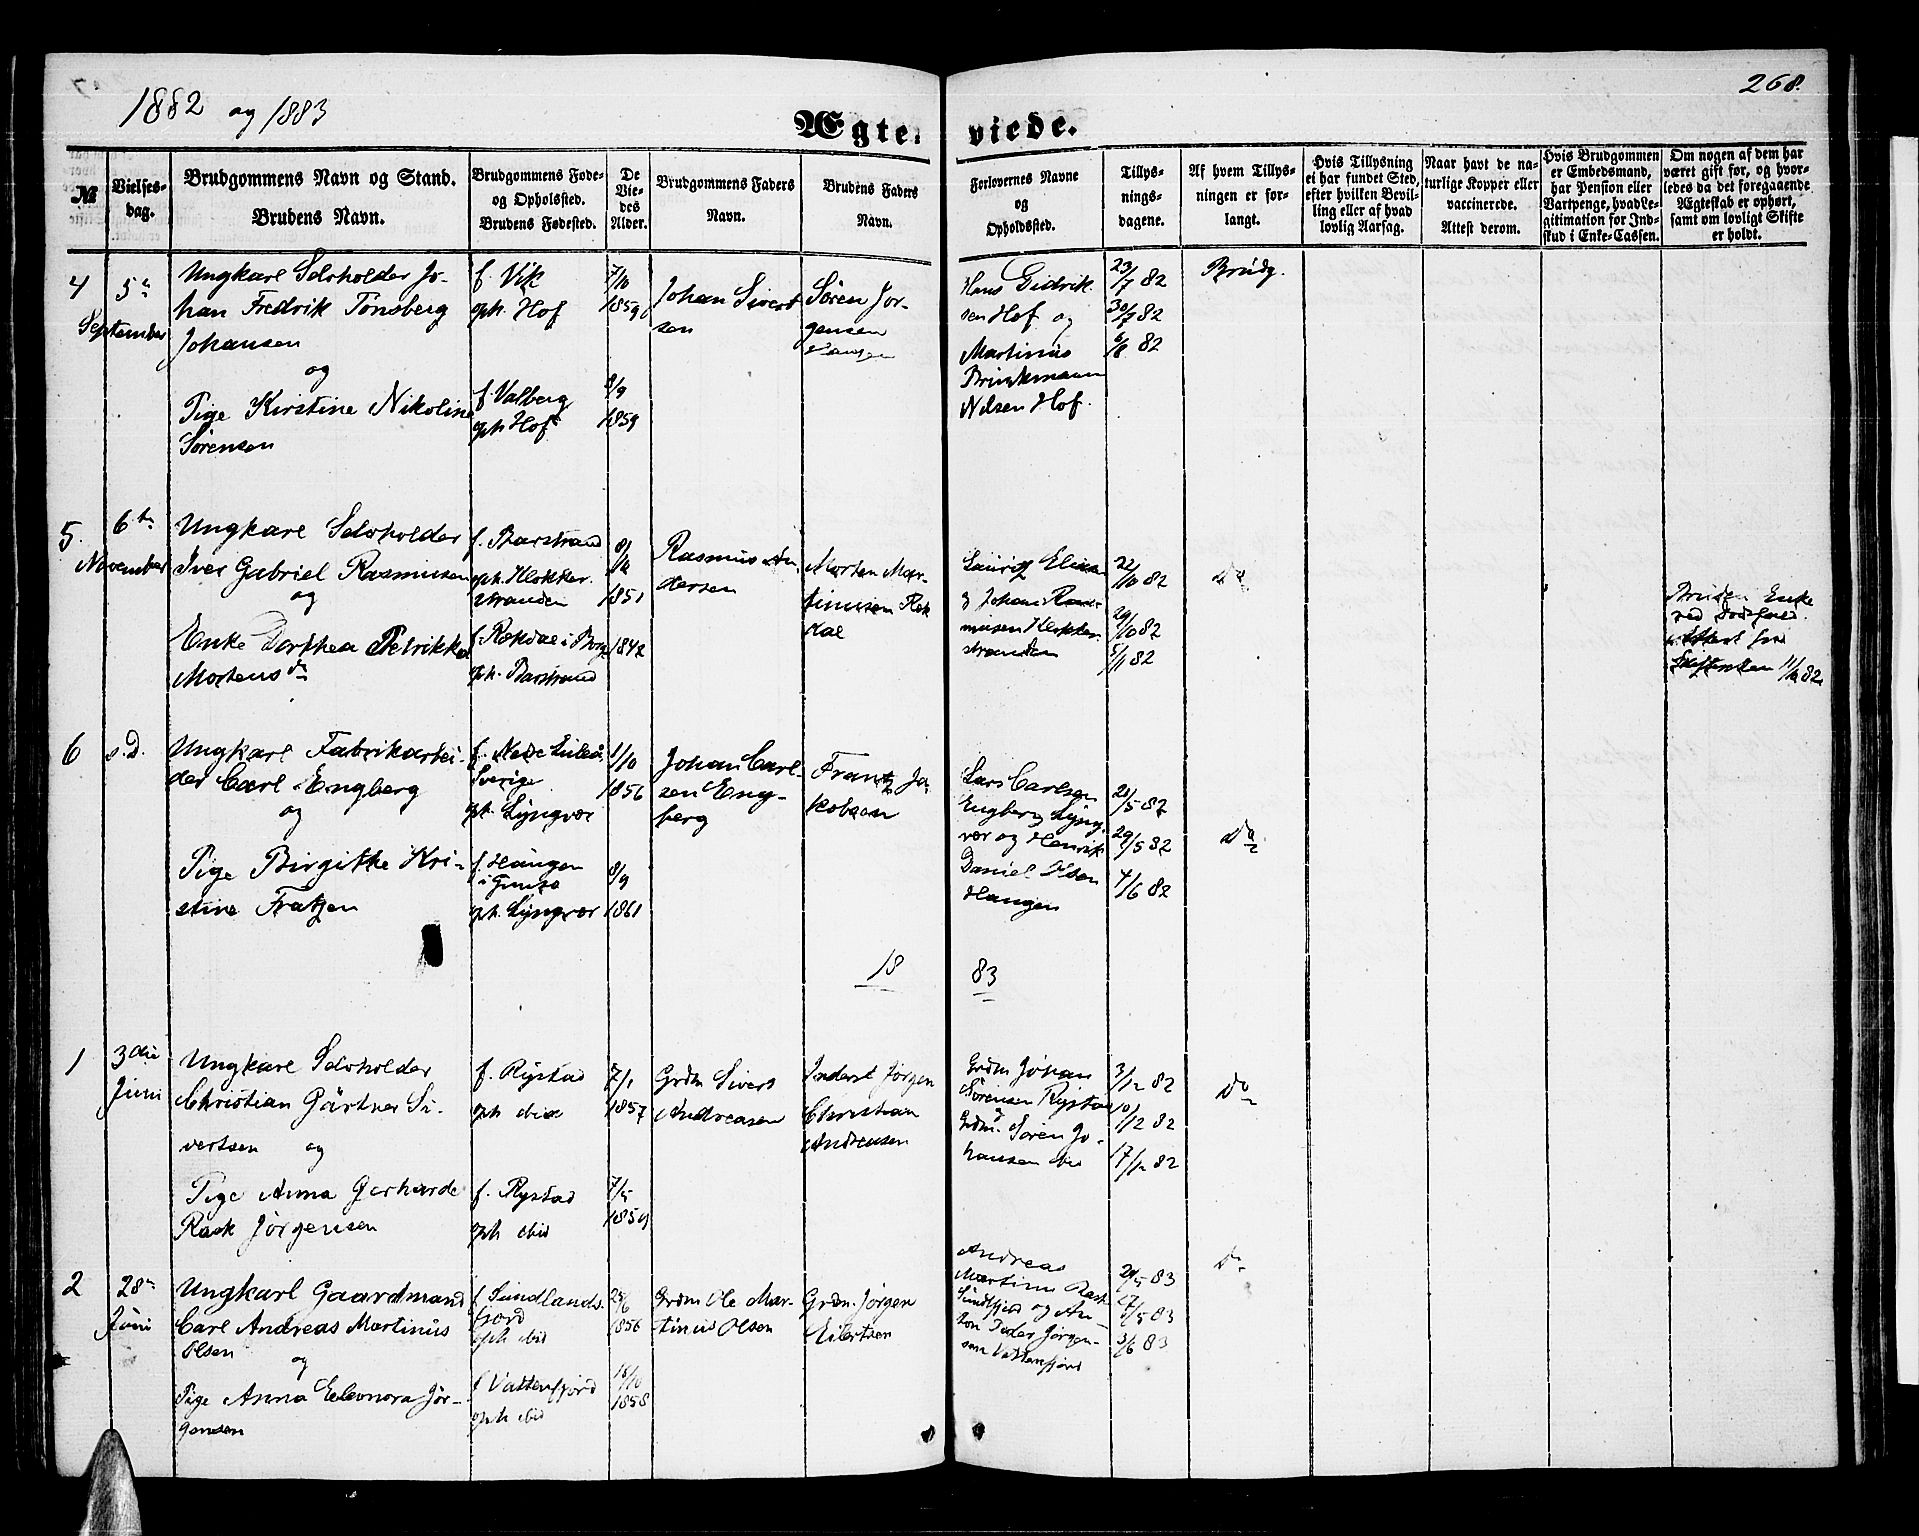 1882 og 1883
268.
Ægteviede.
№
Vielsesdag.
Brudgommens Navn og Stand.
Brudens Navn.
Brudgommens Føde-
og Opholdssted.
Brudens Fødested.
De
Vie-
des
Alder.
Brudgommens Faders
Navn.
Brudens Faders
Navn.
Forlovernes Navne
og
Opholdssted.
Tillys-
nings-
dagene.
Af hvem Tillys-
ningen er for-
langt.
Hvis Tillysning
ei har fundet Sted,
efter hvilken Bevil-
ling eller af hvad
lovlig Aarsag.
Naar havt de na-
turlige Kopper eller
vaccinerede.
Attest derom.
Hvis Brudgommen
er Embedsmand,
har Pension eller
Vartpenge, hvad Le-
gitimation for Ind-
skud i Enke-Cassen.
Om nogen af dem har
været gift før, og hvor-
ledes da det foregaaende
Ægteskab er ophørt,
samt om lovligt Skifte
er holdt.
4
5te
September
Ungkarl Selvholder Jo-
han Fredrik Tønsberg
Johansen
og
Pige Kirstine Nikoline
Sørensen
f. Vik
oph. Hof
f. Valberg
oph Hof
7/10
1859
8/9
1859
Johan Sivert
sen
Søren Jør-
gensen
Hans Gidrik
sen Hof og
Martinus
Brinkmann
Nilsen Hof.
23/7 82
30/7 82
6/8 82
Brudg.
5.
6te
November
Ungkarl Selvholder
Iver Gabriel Rasmusen
og
Enke Dorthea Petrikka
Mortensdr
f. Barstrand
oph. Klokker-
stranden
f. Rekdal i Borge
oph. Barstrand
1851
1842
Rasmus An
dersen
Morten Mar-
tinusen Rek
dal
Lauritz Elia
g Johan Ras-
musen Klokker-
stranden
22/10 82
29/10 82
5/11 82
Do
Bruden Enke
ved Dødsfald.
Attest fra
Skifteretten 11/10 82
6
s.D.
Ungkarl Fabrikarbei-
der Carl Engberg
og
Pige Birgitte Kri-
stine Fratzen
f. Nede Luleå
Sverige
oph. Lyngvær
f. Haugen
i Gimsø
oph. Lyngvær
1/10
1856
8/9
1861
Johan Carl-
sen Eng-
berg
Frantz Ja-
kobsen
Lars Carlsen
Engberg Lyng-
vær og Henrik
Daniel Olsen
Haugen
21/5 82
29/5 82
4/6 82
Do
18 83
1
3die
Juni
Ungkarl Selvholder
Christian Gärtner Si-
vertsen og
Pige Anna Gerharde
Rask Jörgensen
f. Rystad
oph ibid
f. Rystad
oph ibid
7/1
1857
7/5
1859
Grdm Sivert
Andreasen
Inderst Jörgen
Christian
Andreasen
Grdm Johan
Sörensen Rystad
g
Grdm. Sören Jo-
hansen ibid
3/12 82
10/12 82
17/12 82
Do
2
28de
Juni
Ungkarl Gaardmand
Carl Andreas Martinus
Olsen
og
Pige Anna Eleonora Jör-
gensen
f Sundlands-
fjord
oph ibid
f Vattenfjord
oph ibid
1856
16/10
1858
Grdm Ole Mar-
tinus Olsen
Grdm. Jörgen
Eilertsen
Andreas
Martinus Rask
Sundlfjord og An-
ton Peder Jörgen-
sen Vattenfjord
20/5 83
27/5 83
3/6 83
Do